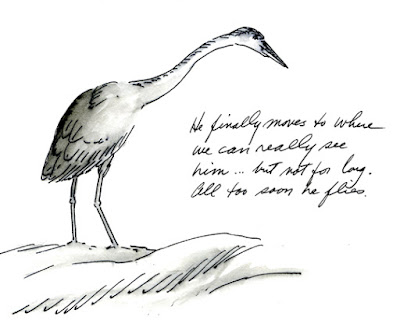 He finally moves to where
we can really see
him ... but not for long.
All too soon he flies.